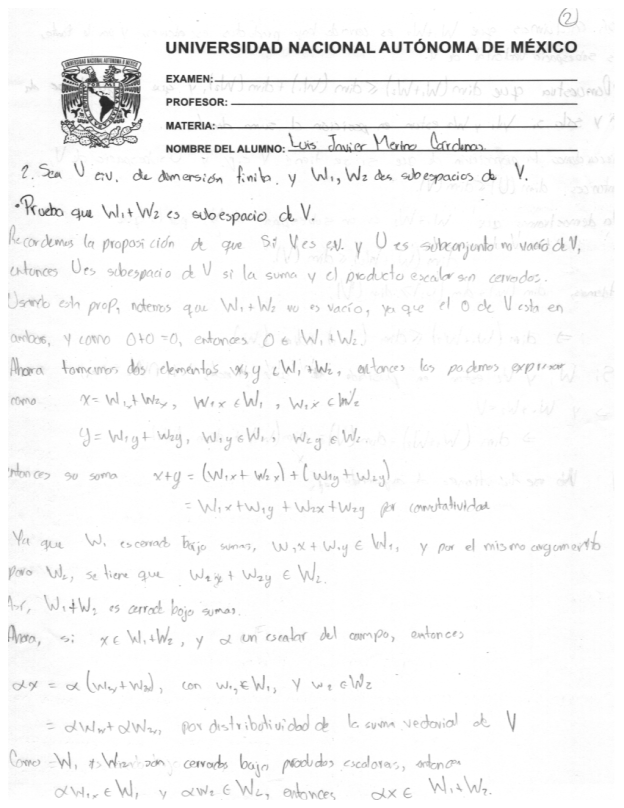 (2)
UNIVERSIDAD NACIONAL AUTÓNOMA DE MÉXICO
EXAMEN:
PROFESOR:
MATERIA:
NOMBRE DEL ALUMNO: Luis Javier Merino Cardenas
2. Sea V e.v. de dimensión finita. y W₁, W₂ dos subespacios de V.
• Prueba que W₁+W₂ es subespacio de V.
Recordemos la proposición de que Si V es e.v. y U es subconjunto no vacío de V,
entonces U es subespacio de V si la suma y el producto escalar son cerrados.
Usando esta prop, notemos que W₁+W₂ no es vacío, ya que el 0 de V esta en
ambos, y como 0+0=0, entonces 0 ∈ W₁+W₂.
Ahora tomemos dos elementos x, y ∈ W₁+W₂, entonces los podemos expresar
como x = W₁ₓ+W₂ₓ, W₁ₓ ∈ W₁, W₁ₓ ∈ W₂
y = W₁y + W₂y, W₁y ∈ W₁, W₂y ∈ W₂
entonces su suma x+y = (W₁x + W₂x) + (W₁y + W₂y)
= W₁x + W₁y + W₂x + W₂y por conmutatividad
Ya que W₁ es cerrado bajo sumas, W₁x + W₁y ∈ W₁, y por el mismo argumento
para W₂, se tiene que W₂x + W₂y ∈ W₂.
W₁+W₂ es cerrado bajo sumas.
Ahora, si x ∈ W₁+W₂, y α un escalar del campo, entonces
αx = α (W₁ₓ+W₂ₓ), con w₁ₓ ∈ W₁, y w₂ ∈ W₂
= αW₁ₓ + αW₂ₓ, por distributividad de la suma vectorial de V
Como W₁ y W₂ son cerrados bajo productos escalares, entonces
αW₁ₓ ∈ W₁ y αW₂ ∈ W₂, entonces αx ∈ W₁+W₂.